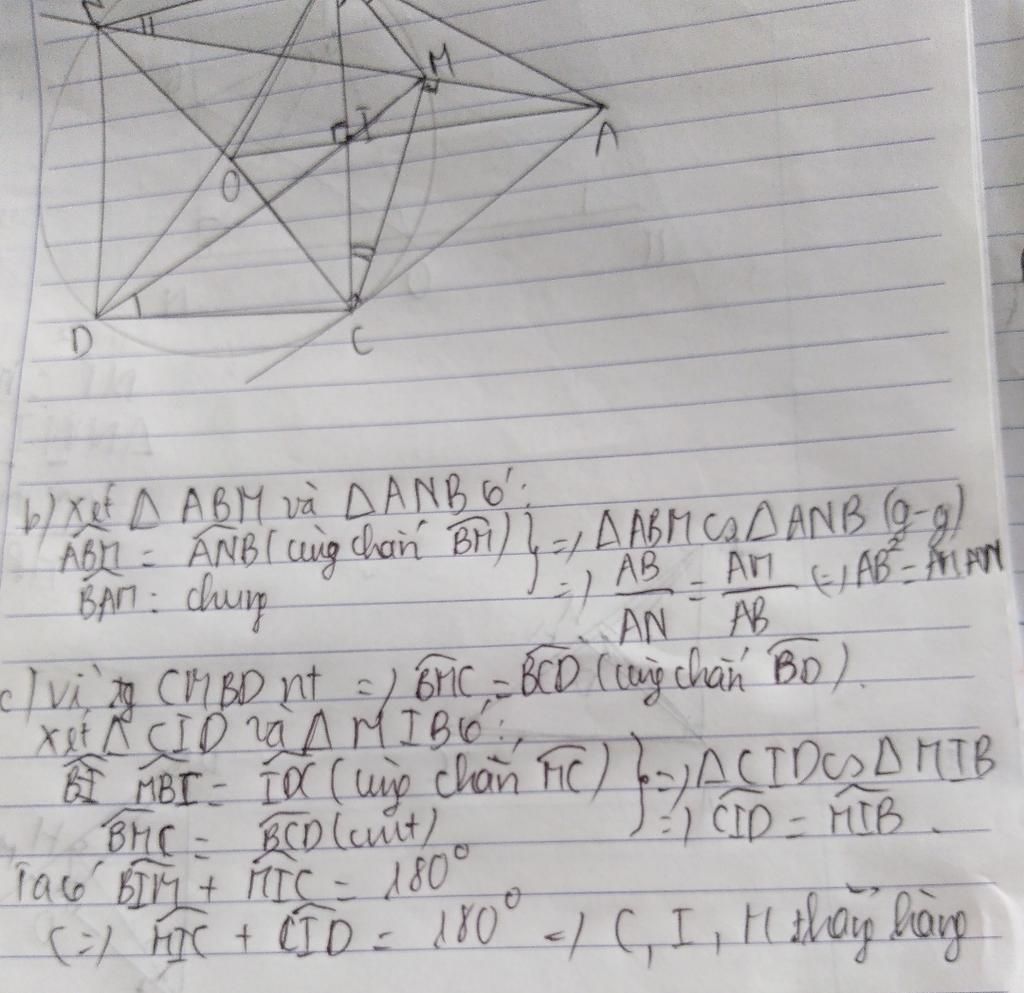 M
I
A
O
D
C
b) xét Δ ABM và Δ ANB có:
ABM = ANB (cùng chắn BM) } => Δ ABM ∽ Δ ANB (g-g)
BAM: chung => AB/AN = AM/AB <=> AB² = AM.AN
c) Vì tg CMBD nt => BMC = BCD (cùng chắn BD).
xét Δ CID và Δ MIB có:
BI MBI = IDC (cùng chắn MC) } => Δ CID ∽ Δ MIB
BMC = BCD (cmt) => CID = MIB.
Ta có BIM + MIC = 180°
<=> MIC + CID = 180° => C, I, M thẳng hàng